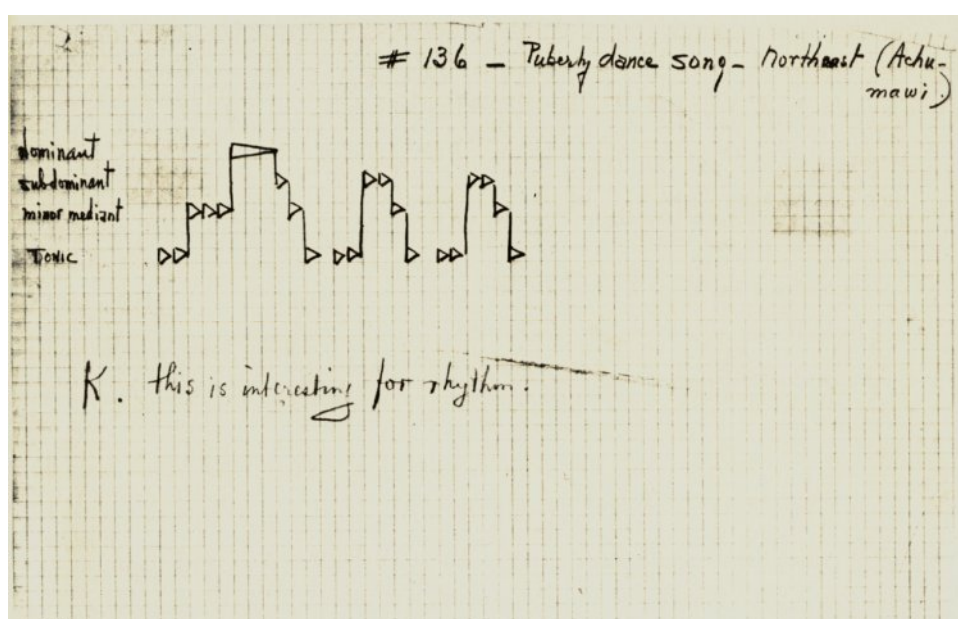 # 136 – Puberty dance song – Northeast (Achu-
mawi)
dominant
subdominant
minor mediant
Tonic
K. this is interesting for rhythm.